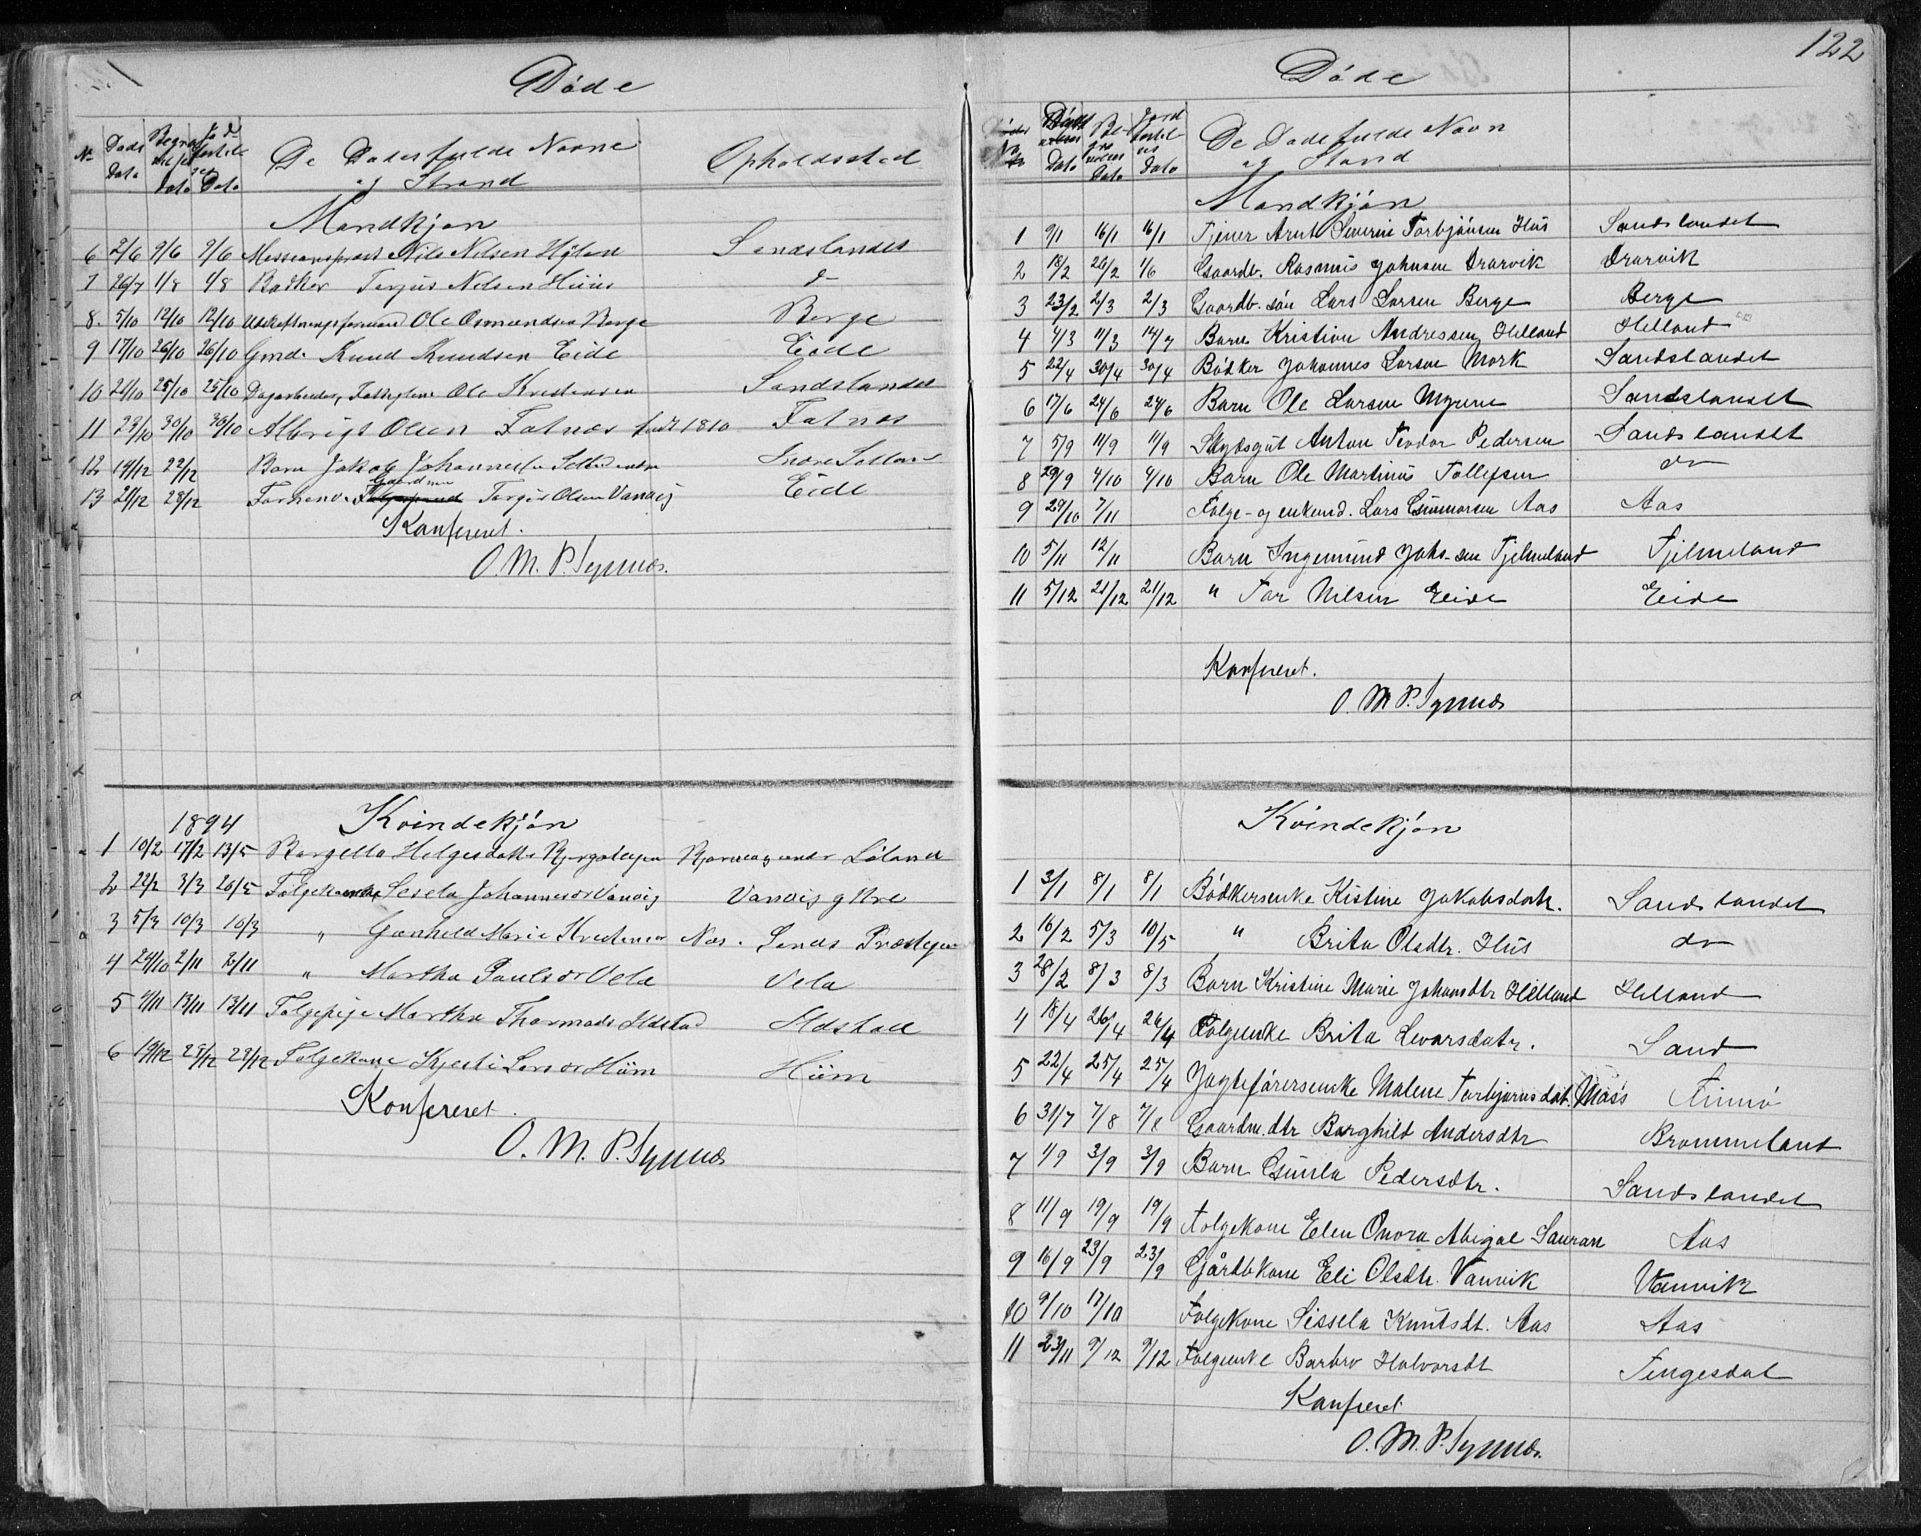 Døde
No Døds Dato Begravelses Dato Jordfæstelses Dato De Dødes fulde Navne og Stand Opholdssted
Mandkjøn
6 2/6 9/6 9/6 Nils Nilsen Hylen Sandslandet
7 26/7 1/8 1/8 Bødker Terjus Nilsen Hiim d
8. 5/10 12/10 12/10 Ole Osmundsen Berge Berge
9 17/10 26/10 26/10 Gmd. Knud Knudsen Eide Eide
10 21/10 25/10 25/10 Dagarbeider, Ole Kristensen Sandslandet
11 23/10 30/10 30/10 Albrigt Olsen Fatnes født 1810 Fatnes
12 14/12 22/12 Barn Jakob Johannes
13 21/12 28/12 Forhenv. Gaardm Torgir Olsen Vanvig Eide
Konfereret.
O. M. P. Synnæs.
1894 Kvindekjøn
1 10/2 17/2 13/5 Helgesdatter Løland
2 22/2 3/3 20/5 Følgekone Sesela Johannesdr Vanvig Vanvig ytre
3 5/3 10/3 10/3 " Gonheld Marie Kristensdr Næs. Sands Præstegn
4 24/10 2/11 2/11 " Martha Paulsdr Vela Vela
5 4/11 13/11 13/11 Følgepige Martha Thormods Ilstad Ilstad
6 19/12 28/12 28/12 Følgekone Kjersti Larsdr Hiim Hiim
Konfereret.
O. M. P. Synnæs
122
Døde
No Døds Dato Begravelses Dato Jordfæstelses Dato De Dødes fulde Navn og Stand
Mandkjøn
1 9/1 16/1 16/1 Tjener Arnt Severin Torbjønsen Hus Sandslandet
2 18/2 26/2 1/6 Gaardb. Rasmus Johnsen Drarvik Drarvik
3 23/2 2/3 2/3 Gaardb. søn Lars Larsen Berge Berge
4 4/3 11/3 14/7 Barn Kristian Andressen Helland Helland
5 22/4 30/4 30/4 Bødker Johannes Larsen Mork Sandslandet
6 17/6 24/6 24/6 Barn Ole Larsen Myren Sandslandet
7 5/9 11/9 11/9 Skydsgut Anton Teodor Pedersen Sandslandet
8 29/9 4/10 4/10 Barn Ole Martinus Tollefsen do
9 29/10 7/11 Følge- og enkemd. Lars Gunnarsen Aas Aas
10 5/11 12/11 Barn Ingemund Johs-sen Fjelmeland Fjelmeland
11 5/12 21/12 21/12 " Tor Nilsen Eide Eide
Konfereret.
O. M. P. Synnæs
Kvindekjøn
1 3/1 8/1 8/1 Bødkersenke Kistine Jakobsdatr. Sandslandet
2 16/2 5/3 10/5 " Brita Olsdtr. Hus do
3 28/2 8/3 8/3 Barn Kristine Marie Johansdtr Helland Helland
4 18/4 26/4 26/4 Følgeenke Brita Levarsdatr. Sand
5 22/4 25/4 25/4 Jagteførersenke Malene Torbjørnsdat. Mass Finnø
6 31/7 7/8 7/8 Gaardm.dtr Borghild Andersdtr Brommeland
7 1/9 3/9 3/9 Barn Gunla Pedersdtr. Sandslandet
8 11/9 19/9 19/9 Følgekone Elen Onora Abigal Sauran Aas
9 16/9 23/9 23/9 Gårdbkone Eli Olsdtr. Vanvik Vanvik
10 9/10 17/10 Følgekone Sissela Knutsdt. Aas Aas
11 23/11 9/12 9/12 Følgeenke Barbro Halvorsdt Tengesdal
Konfereret
O. M. P. Synnæs.